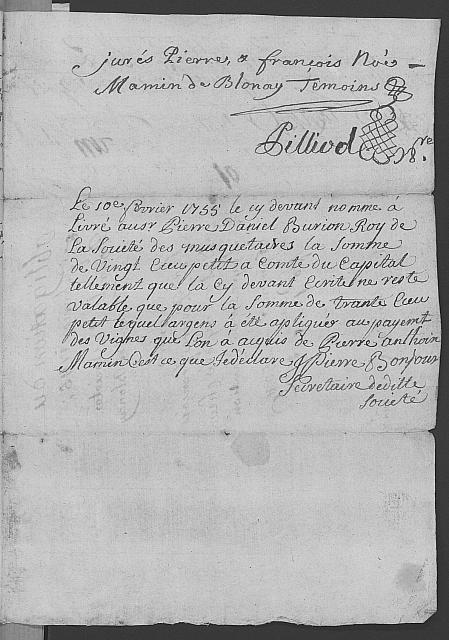 jurés Pierre, & françois Noé
Mamin de Blonay Témoins
Pilliod
Le 10e fevrier 1755 le cy devant nommé à
Livré ausr Pierre Daniel Burion Roy de
La Societé des musquetaires la Somme
de Vingt Ecu petit a Comté du Capital
tellesment que la Cy devant Ecrite ne reste
valable que pour la Somme de Trante Ecu
petit lequel argens à été apliquér au payemt
des Vignes que Lon à acquis de Pierre anthoin
Mamin C'est ce que Jedéclare Pierre Bonjour
Secretaire deditte
Societé